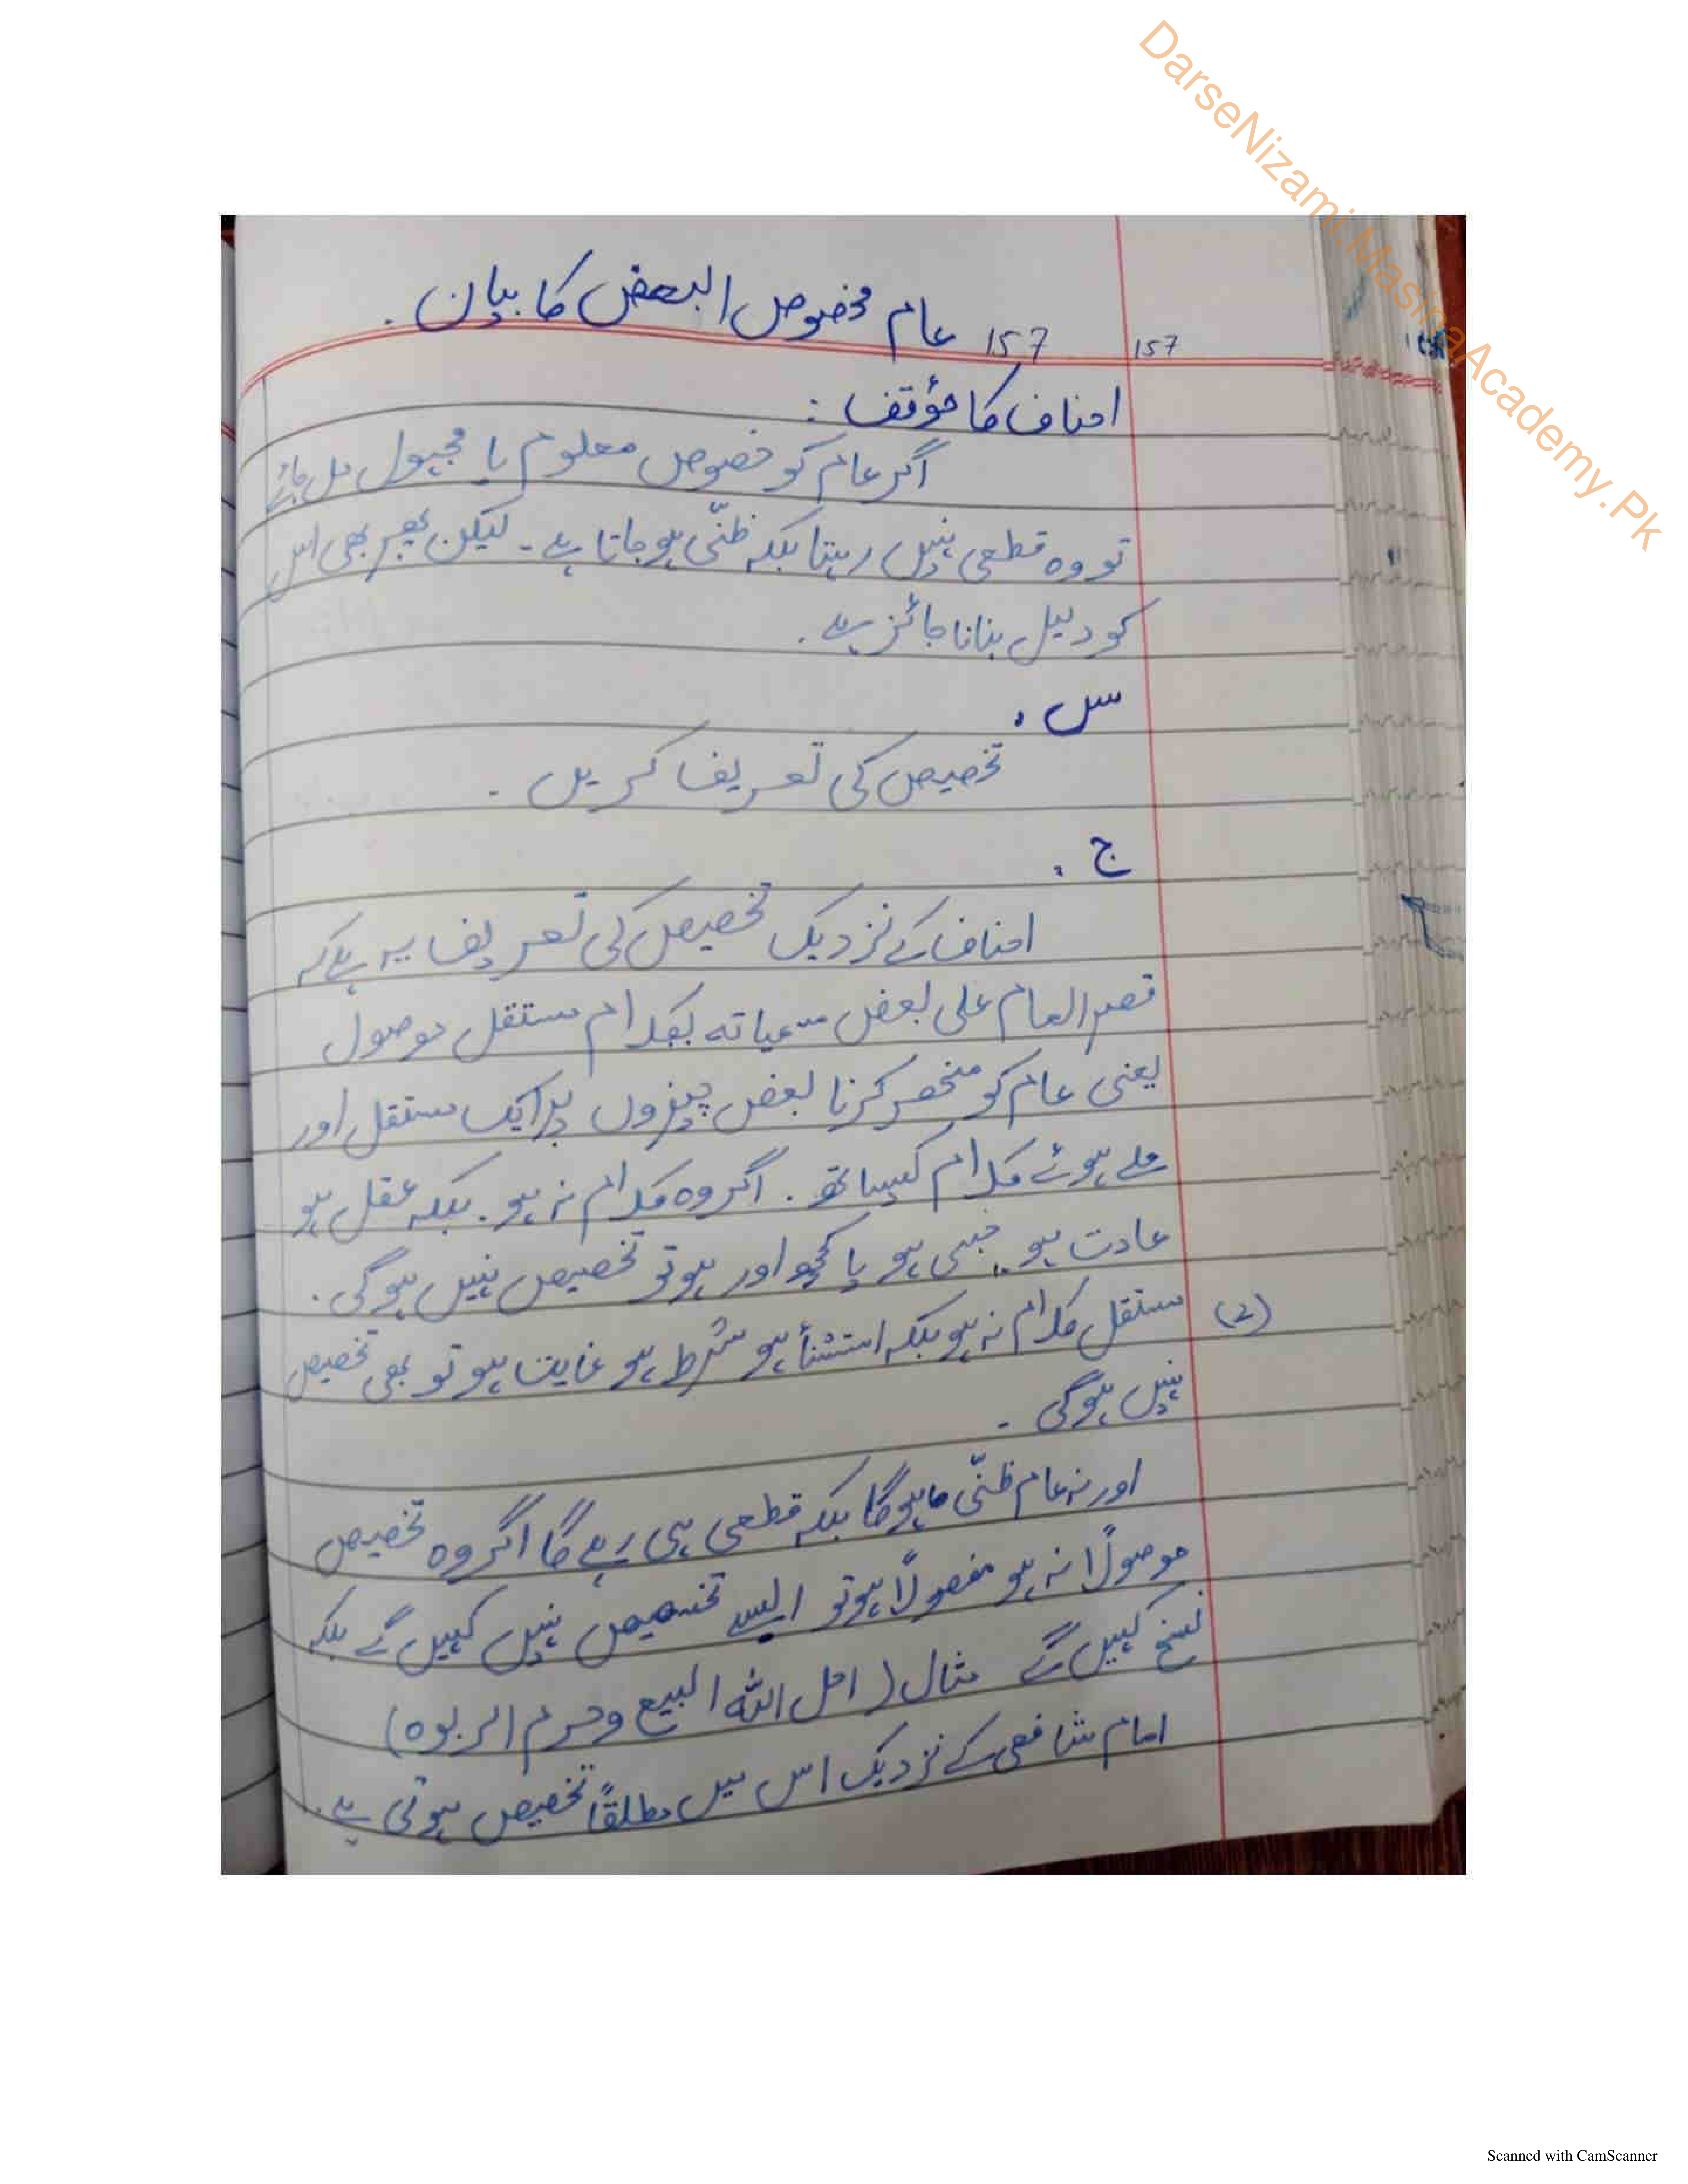 DarseNizami.MasinaAcademy.Pk
157 157 عام مخصوص البعض کا بیان .
احناف کا مؤقف :
اگر عام کو خصوص معلوم یا مجہول مل جائے
تو وہ قطعی نہیں رہتا بلکہ ظنّی ہو جاتا ہے ۔ لیکن پھر بھی اس
کو دلیل بنانا جائز ہے .
س .
تخصیص کی تعریف کریں ۔
ج .
احناف کے نزدیک تخصیص کی تعریف یہ ہے کہ
قصر العام علی بعض مسمیاتہ بکلام مستقل موصول
یعنی عام کو منحصر کرنا بعض چیزوں پر ایک مستقل اور
ملے ہوئے کلام کیساتھ . اگر وہ کلام نہ ہو . بلکہ عقل ہو
عادت ہو حسی ہو یا کچھ اور ہو تو تخصیص نہیں ہو گی .
(2) مستقل کلام نہ ہو بلکہ استثنأ ہو شرط ہو غایت ہو تو بھی تخصیص
نہیں ہو گی ۔
اور نہ عام ظنّی ہو گا بلکہ قطعی ہی رہے گا اگر وہ تخصیص
موصولًا نہ ہو مفصولًا ہو تو ایسے تخصیص نہیں کہیں گے بلکہ
نسخ کہیں گے مثال ( احل اللہ البیع وحرم الربوہ )
امام شافعی کے نزدیک اس میں مطلقًا تخصیص ہوتی ہے .
Scanned with CamScanner